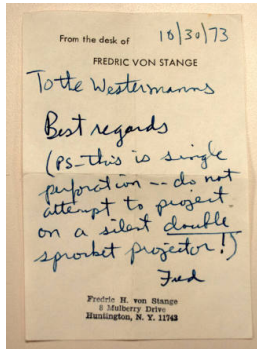 From the desk of 10/30/73
FREDRIC VON STANGE
To the Westermanns
Best regards
(PS-this is single
perforation -- do not
attempt to project
on a silent double
sprocket projector!)
Fred
Fredric H. von Stange
8 Mulberry Drive
Huntington, N. Y. 11743